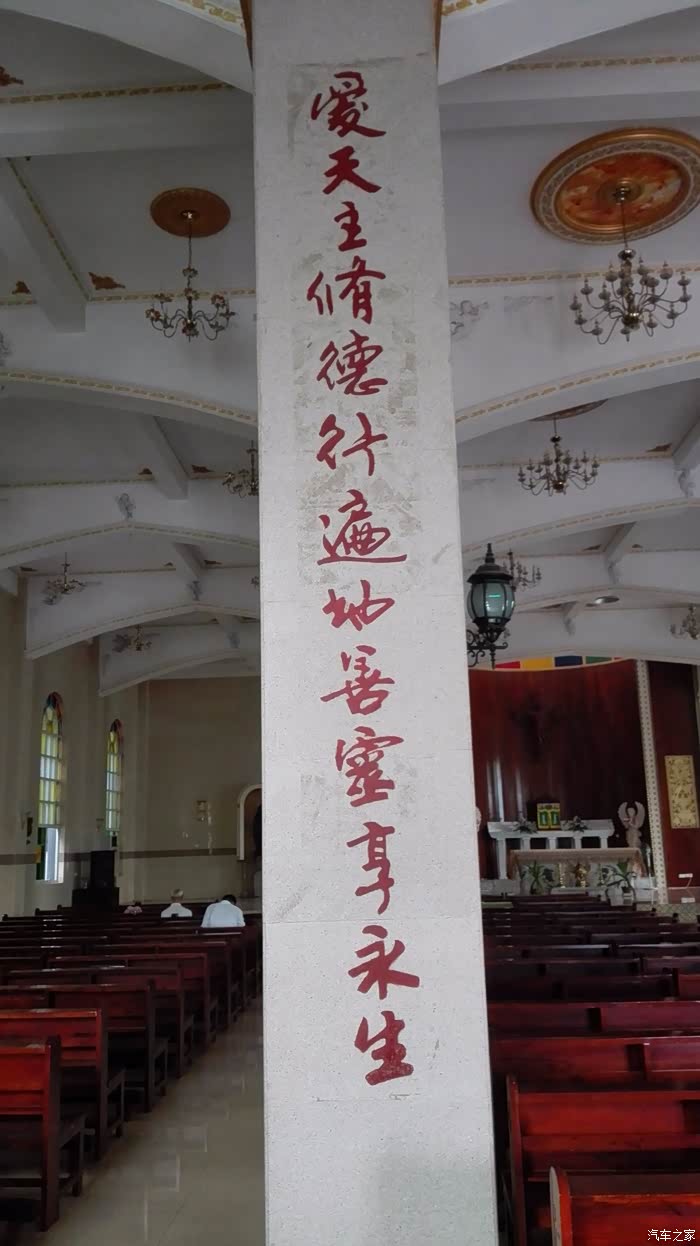 愛天主脩德行遍地善靈享永生
汽车之家